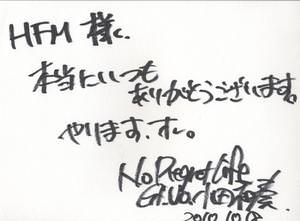 HFM 様.
本当にいつも
ありがとうございます。
やります、す。
No Regret Life
Gt.Vo. 小田和奏
2010.10.8